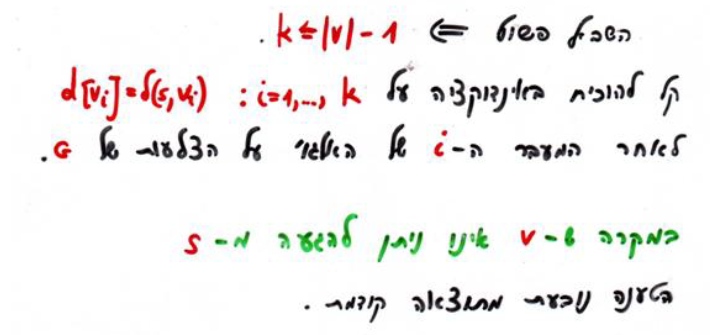 השביל פשוט ⇐ k ≤ |V| - 1 .
קל להוכיח באינדוקציה על i=1,..., k : d[vᵢ]=δ(s,vᵢ)
לאחר המעבר ה-i של האלגו' על הצלעות של G.
במקרה ש-v אינו ניתן להגעה מ-s
הטענה נובעת מתוצאה קודמת .